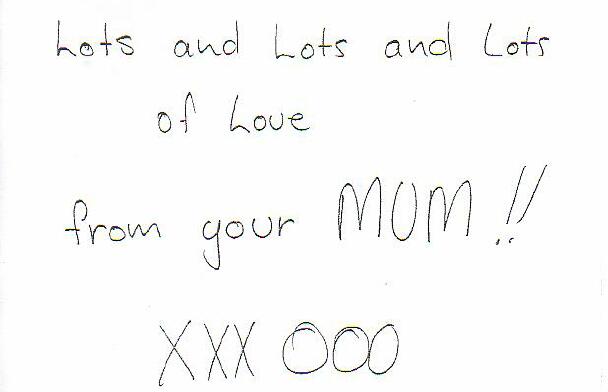 Lots and Lots and Lots
of Love
from your MUM!!
XXX OOO